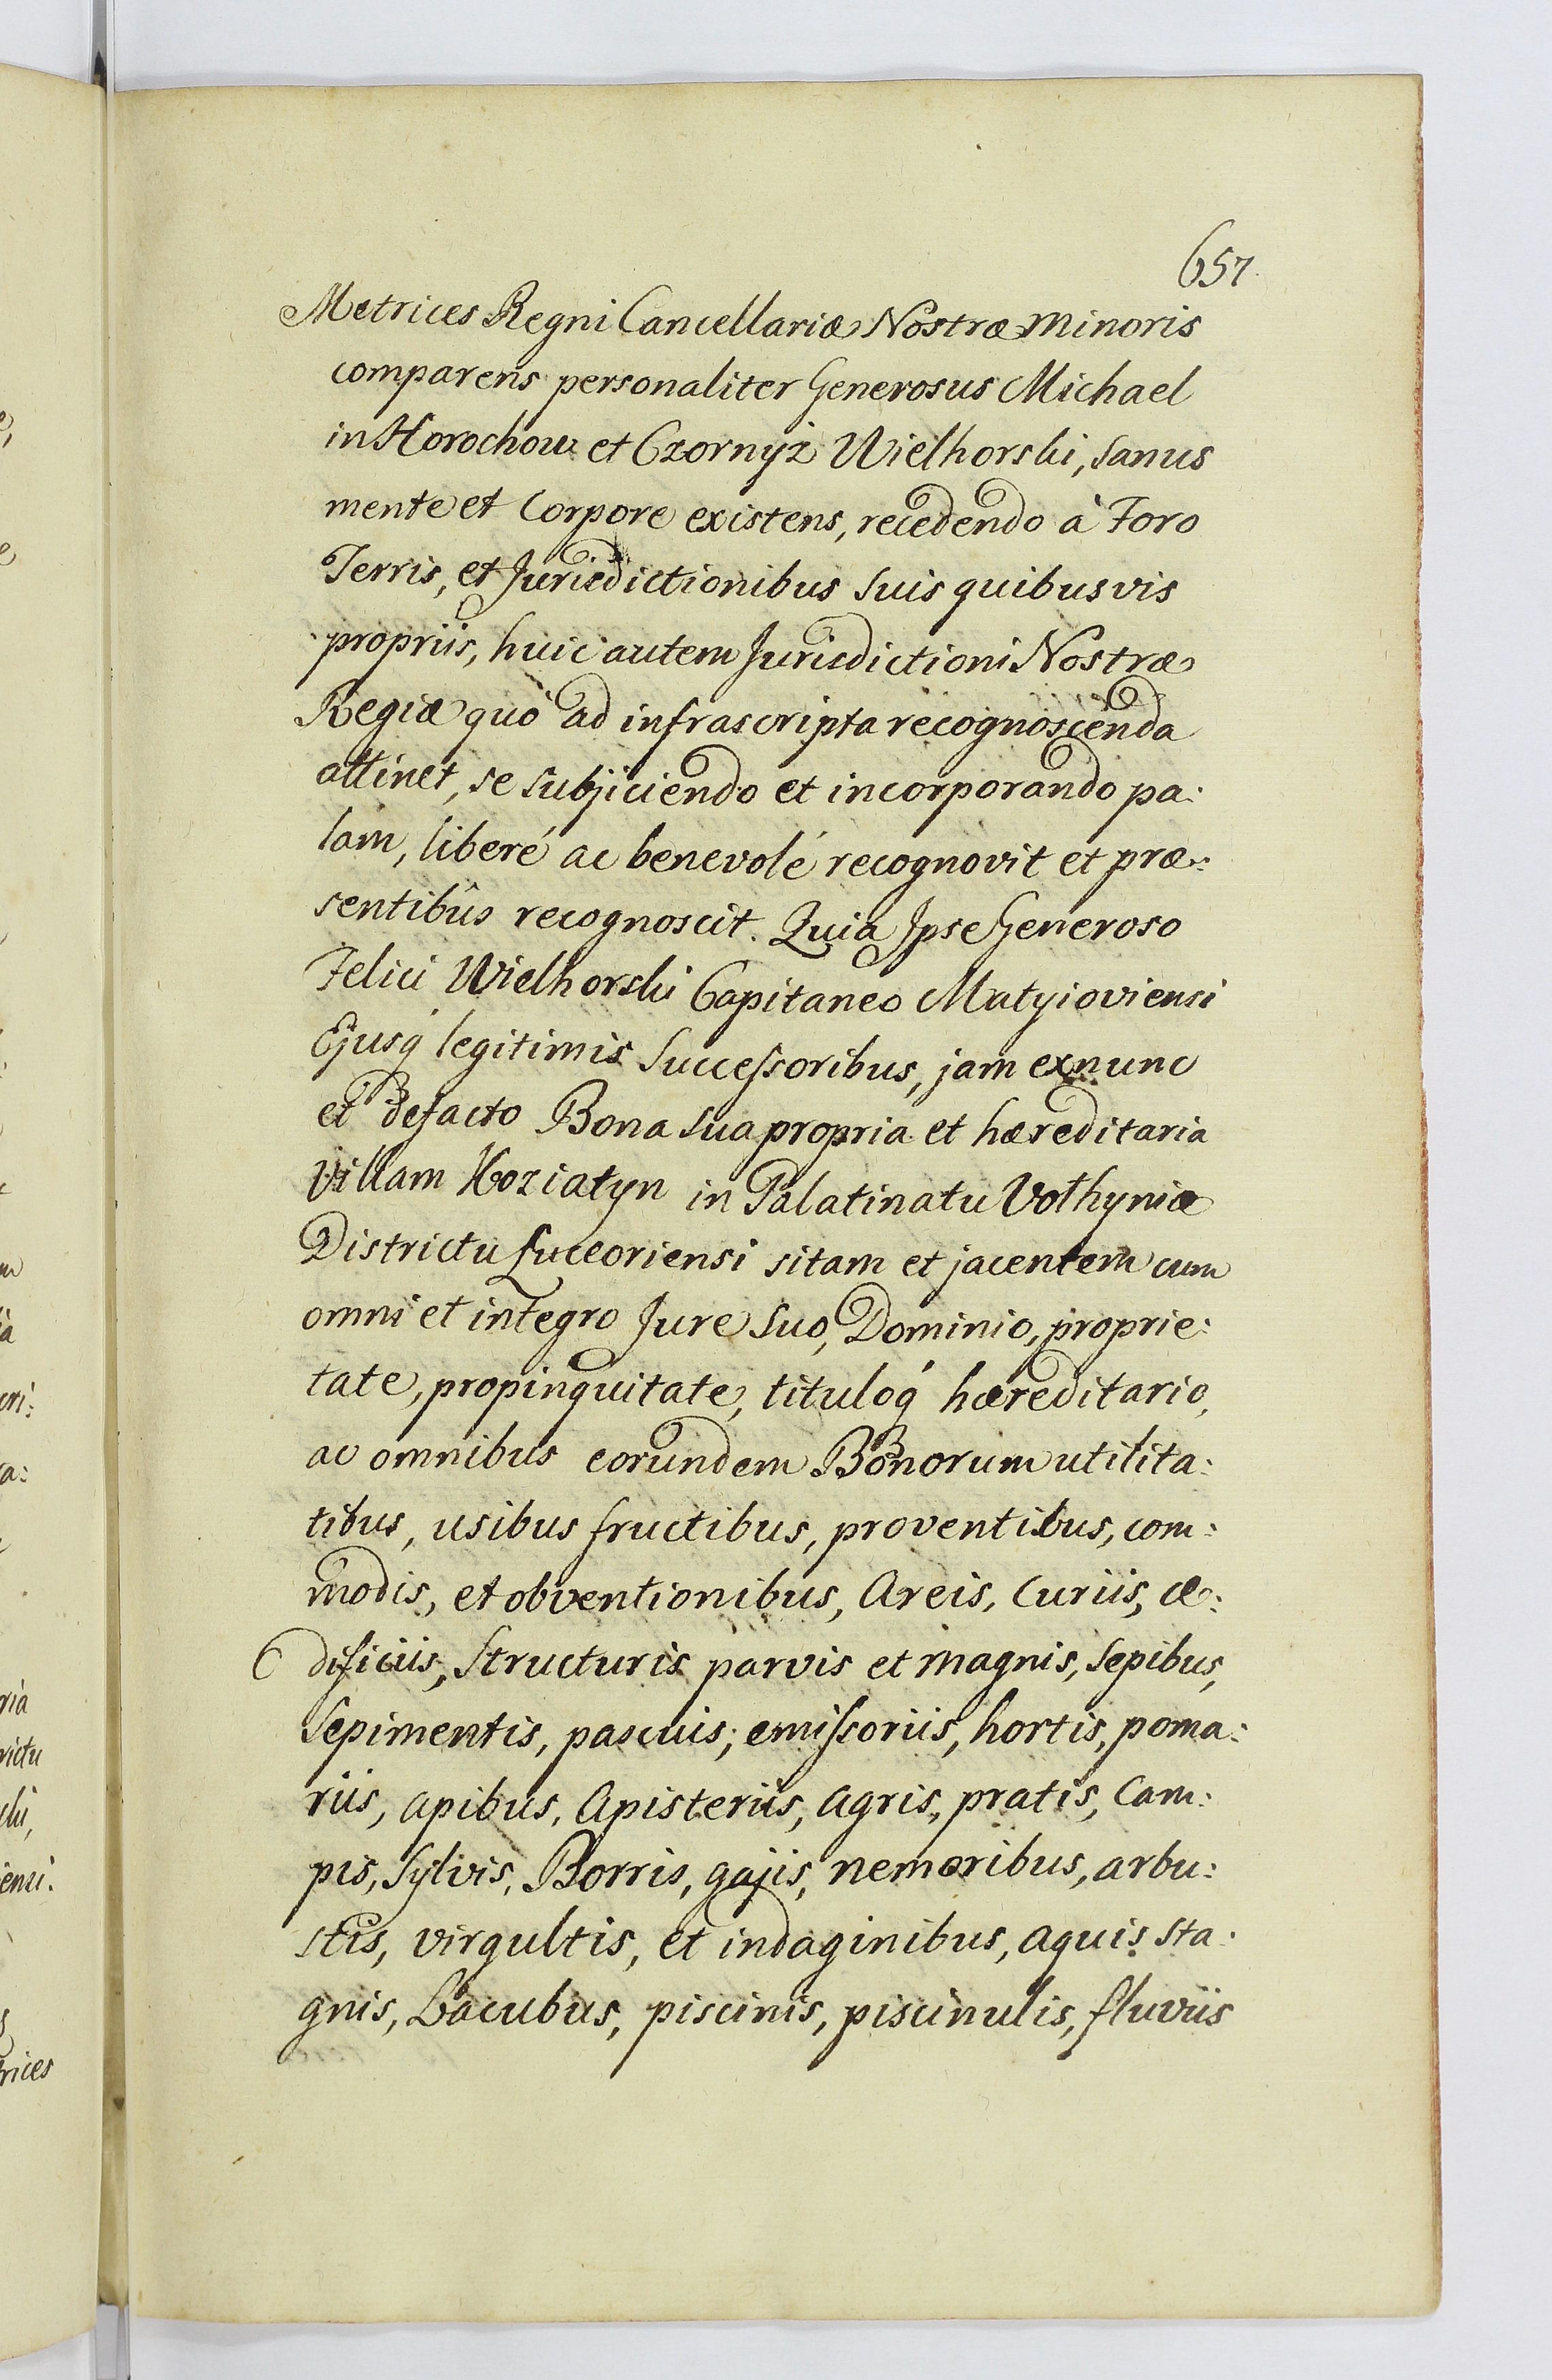 657.
Metrices Regni Cancellariæ Nostræ Minoris
comparens personaliter Generosus Michael
in Horochow et Czornyż Wielhorski, Sanus
mente et Corpore existens, recedendo à Foro
Terris, et Jurisdictionibus Suis quibusvis
propriis, huic autem Jurisdictioni Nostræ
Regiæ quò ad infrascripta recognoscenda
attinet, se subjiciendo et incorporando pa:
lam, liberé ac benevolé recognovit et præ:
sentibûs recognoscit. Quia Ipse Generoso
Felici Wielhorski Capitaneo Matyioviensi
Ejusq́ legitimis Successoribus, jam exnunc
et defacto Bona sua propria et hæreditaria
Villam Koziatyn in Palatinatu Volhyniæ
Districtu Luceoriensi sitam et jacentem cum
omni et integro Jure Suo, Dominio, proprie:
tate, propinquitate, tituloq́ hæreditario,
ac omnibus eorundem Bonorum utilita:
tibus, usibus fructibus, proventibus, com:
modis, et obventionibus, Areis, Curiis, æ:
dificiis, Structuris parvis et magnis, Sepibus,
Sepimentis, pascuis, emissoriis, hortis, poma:
riis, apibus, Apisteriis, Agris, pratis, Cam:
pis, Sylvis, Borris, gajis, nemoribus, arbu:
stis, virgultis, et indaginibus, aquis sta:
gnis, Lacubus, piscinis, piscinulis, fluviis